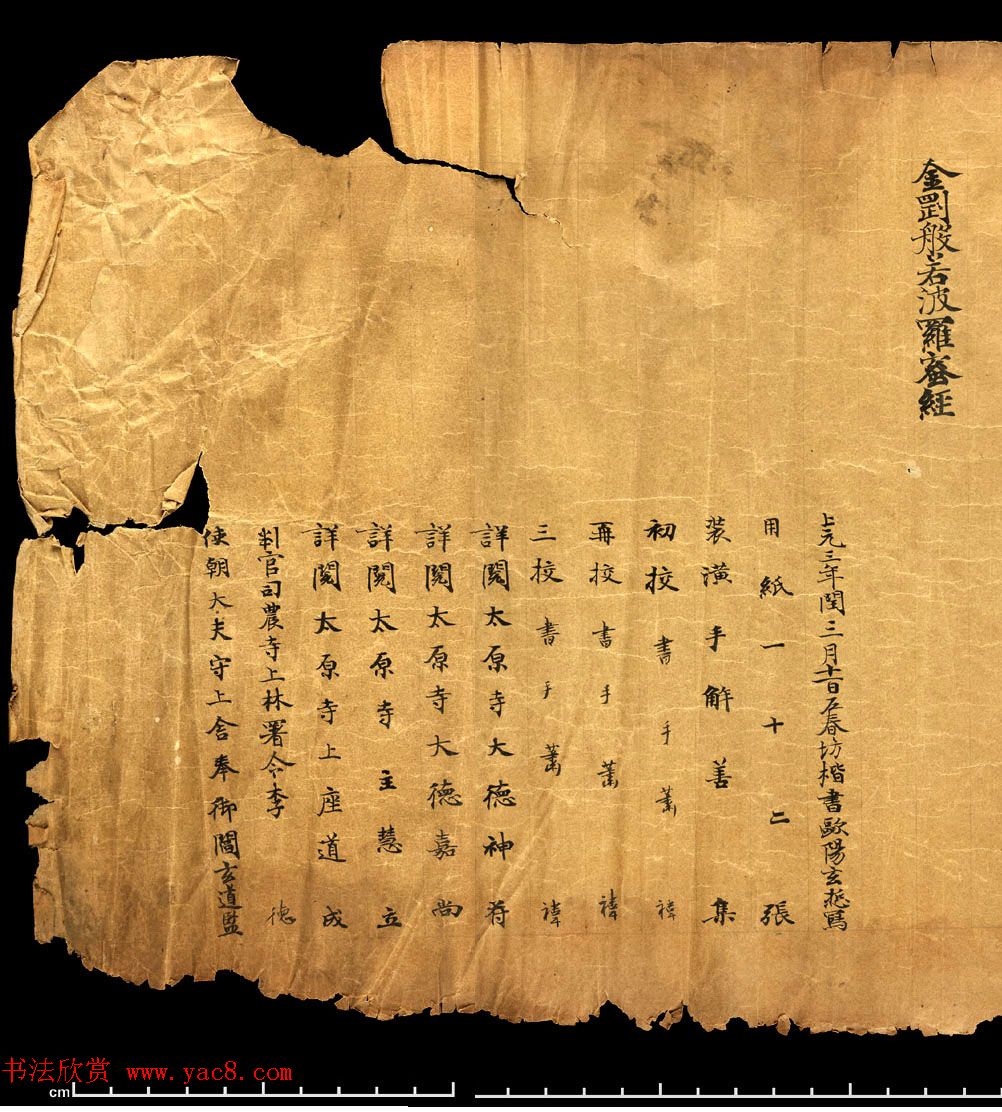 金剛般若波羅蜜經
上元三年閏三月十一日左春坊楷書歐陽玄悊寫
用紙一十二張
裝潢手解善集
初挍書手蕭禕
再挍書手蕭禕
三挍書手蕭禕
詳閱太原寺大德神苻
詳閱太原寺大德嘉尚
詳閱太原寺主慧立
詳閱太原寺上座道成
判官司農寺上林署令李德
使朝大夫守上舍奉御閻玄道監
书法欣赏 www.yac8.com
cm